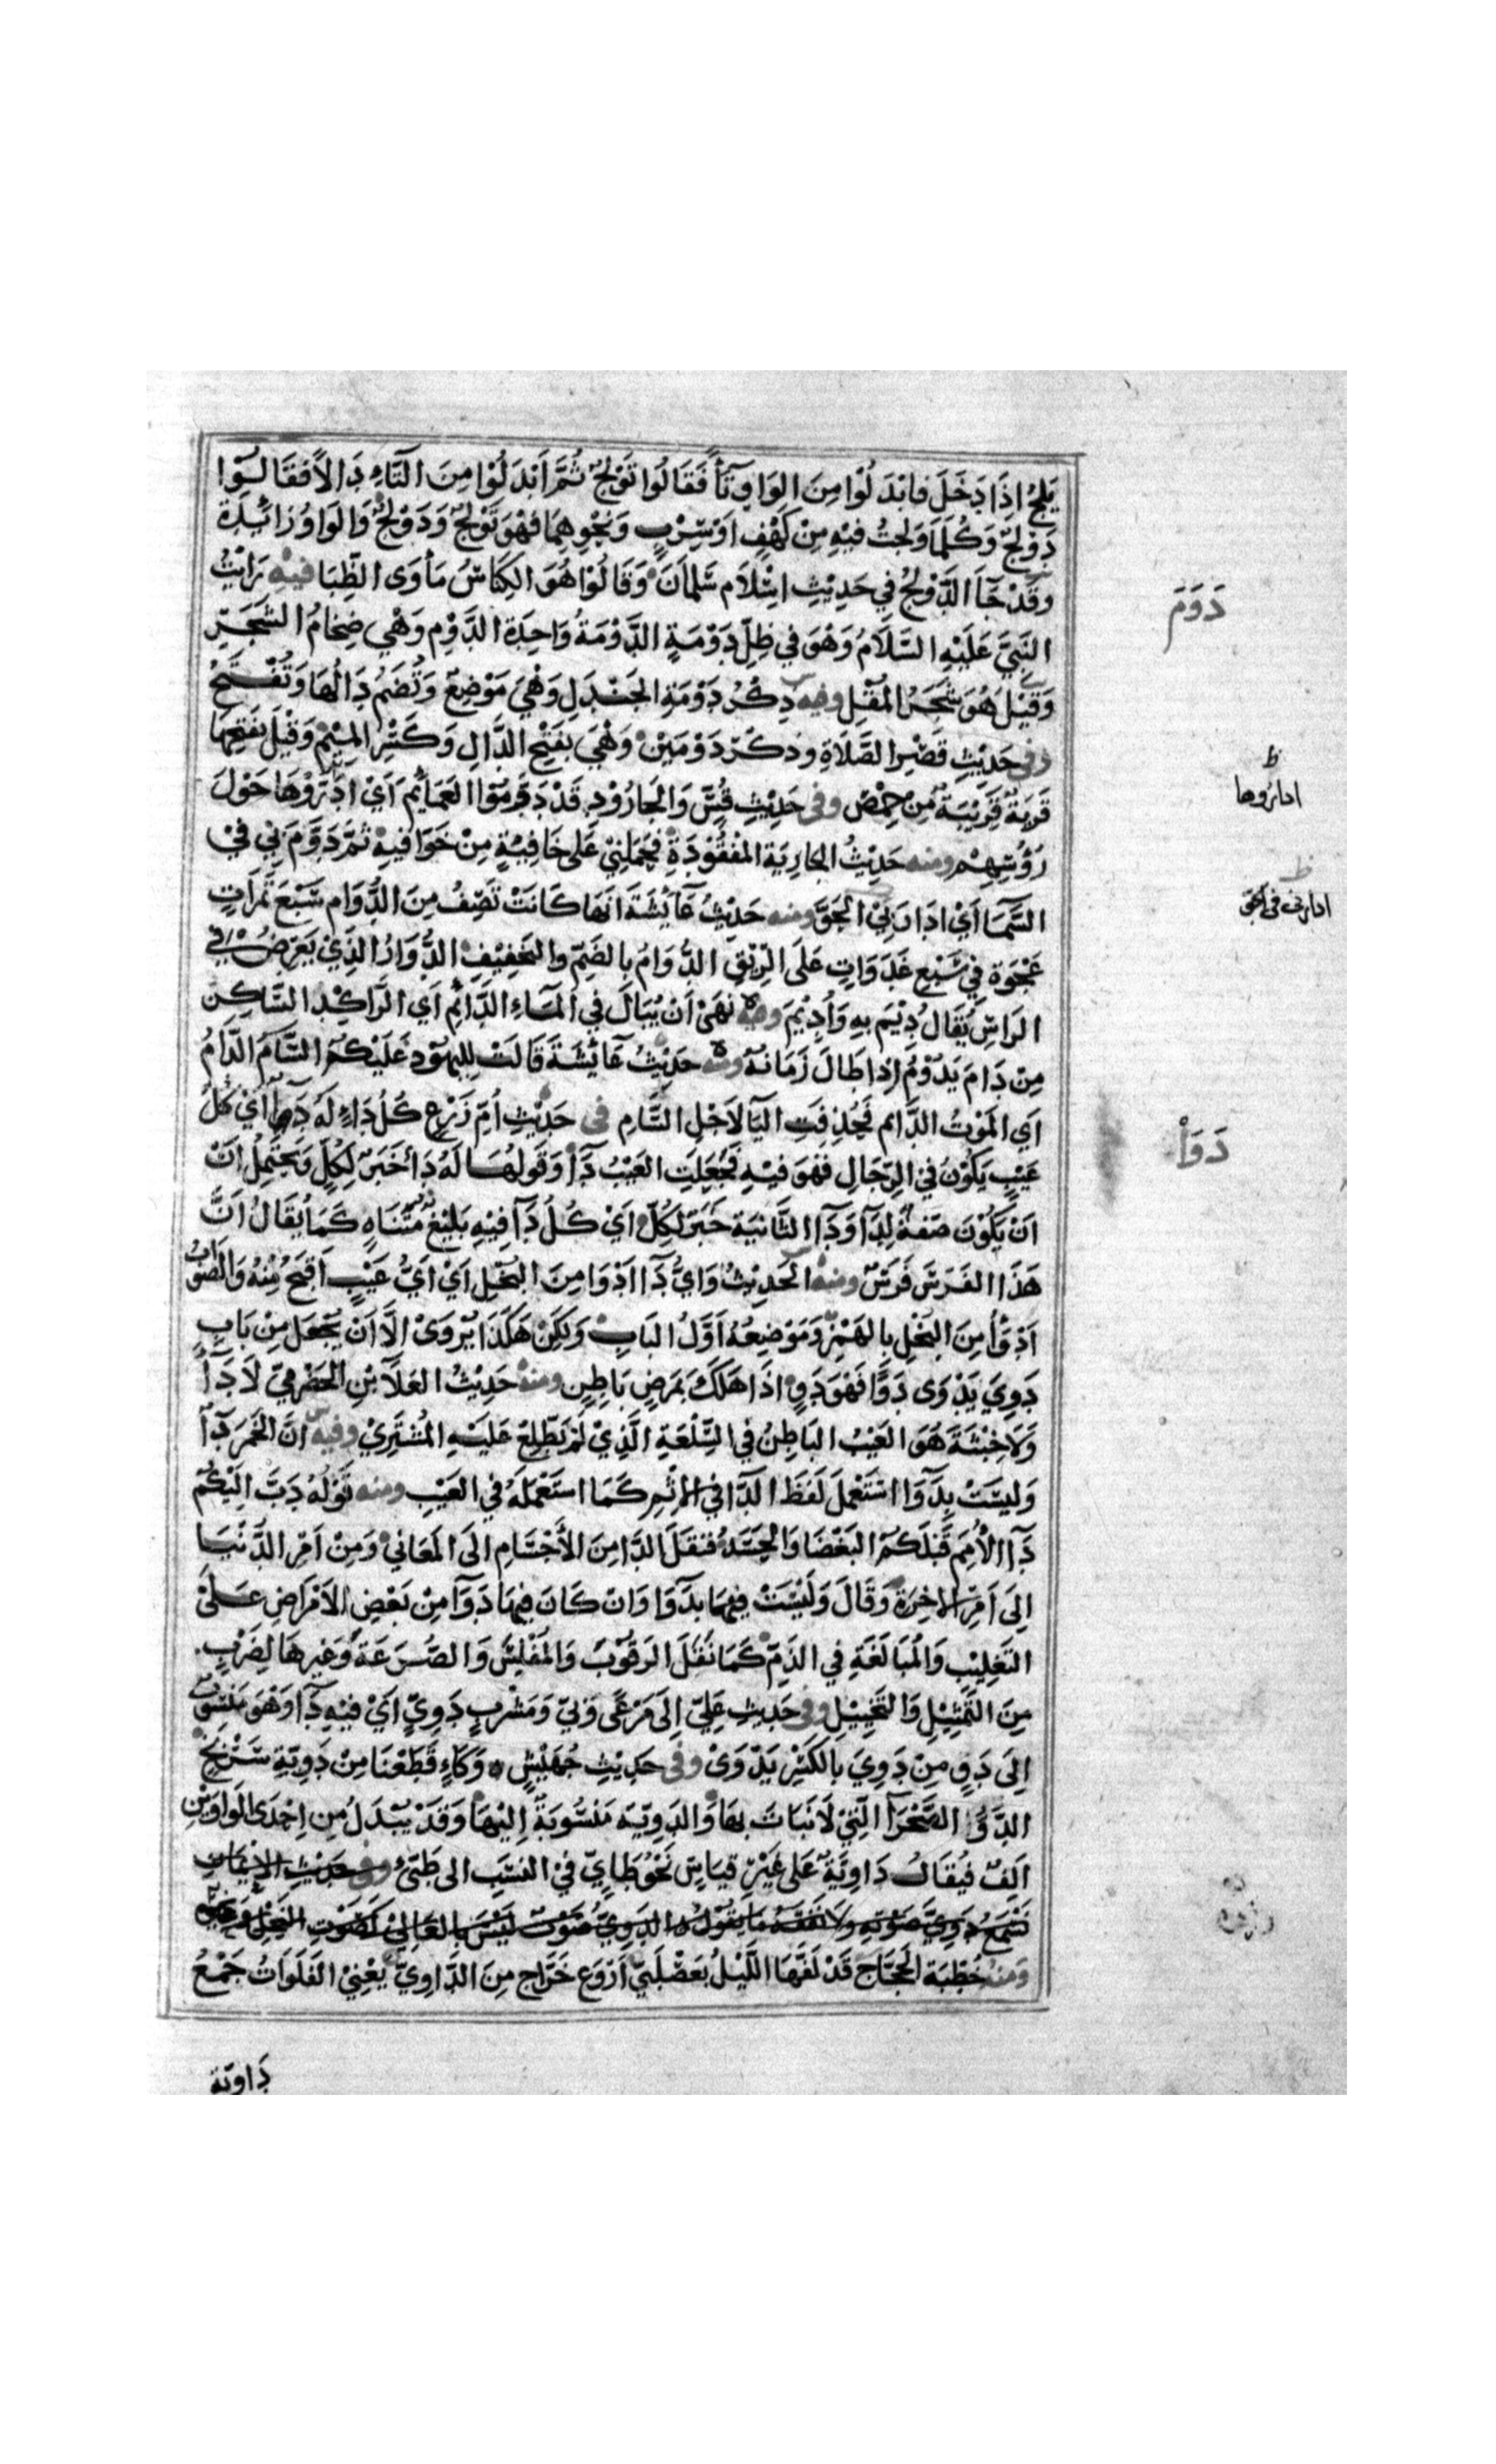 يَلِجُ اِذَا دَخَلَ فابْدَلُوْا مِنَ الوَاوِ تَآءً فَقَالُوا تَوْلَجٌ ثُمَّ اَبْدَلُوْا مِنَ التَّاءِ دَالاً فَقَالُوْا
دَوْلَجٌ وَكُلَمَا وَلَجْتُ فِيْهِ مِنْ كَهْفٍ اَوْ سَرْبٍ وَنَحْوِهِمَا فَهْوَ تَوْلَجٌ وَدَوْلَجٌ وَالوَاوُ زَائِدَةٌ
وقَدْ جَآ الدَّوْلَجُ فِي حَدِيْثِ اسْلَام سَلمَانَ وَقَالُوْا هُوَ الكِنَاسُ مَأوَى الظِّبَا فيهِ رَايْتُ
النَّبِيَّ عَلَيْهِ السَّلَامُ وَهْوَ فِي ظِلِّ دَوْمَةٍ الدَّوْمَةُ وَاحِدَة الدَّوْمِ وَهْيَ ضِخَامُ الشَّجَرِ
وَقِيْلَ هُوَ شَجَرُ المُقْلِ وفيه ذِكْرُ دَوْمَةِ الجَنْدَلِ وَهْيَ مَوْضِعٌ وَتُضَمُ دَالُهَا وَتُفْتَحُ
وفى حَدِيْثِ قَصْرِ الصَّلَاةِ وذكَرَ دَوْمِيْن وَهْيَ بفَتْحِ الدَّالِ وَكَسْرِ المِيْم وَقِيْلَ بفَتْحِهَا
قَريَةٌ قَرِيْبَةٌ مِنْ حِمْصَ وفى حَدِيْثِ قُسٍّ وَالجَارُوْدِ قَدْ دَوَّمُوْا العَمَائِمَ اَيْ ادَرَوْهَا حَوْلَ
رُؤُسِهِمْ ومنه حَدِيْثُ الجارِيَة المَفْقُوْدَةِ فَحَمَلَنِيْ عَلى خَافِيَةٍ مِنْ خَوَافِيهِ ثُمَّ دَوَّمَ بِي فيْ
السَّمَآ اَيْ ادَارَنِيْ الجَوَّ ومنه حَدِيْثُ عَآئِشَةَ انَهَا كَانَتْ تَصِفُ مِنَ الدُّوَامِ سَبْعَ تَمرَاتٍ
عَجْوَة فِي سَبْعِ غَدَوَاتٍ عَلَى الرِّيْقِ الدُّوَامُ بالضَمِّ والتخفِيْفِ الدُّوَارُ الذِي يَعْرِضُ فِي
الرَاسِ يُقَالُ دِيْمَ بِهِ وَأُدِيْمَ وفيه نَهَى اَنْ يُبَالَ فِي المَآءِ الدَّائِمِ اَي الرَّاكِدِ السَّاكِنِ
مِنْ دَامَ يَدُوْمُ اِذا طَالَ زَمَانهُ ومنه حَدِيْثُ عَائِشَةَ قَالَتْ لِليَهُوْدِ عَلَيْكُمُ السَّامُ الدَّامُ
اَيِ المَوْتُ الدَّائِم فَحُذِفَتِ اليَآ لِاَجْلِ السَّامِ فى حَدِيْثِ اُمِّ زَرْعٍ كُلُ دَآءٍ لهُ دَآءٌ اَيْ كُلُ
عَيْبٍ يَكُوْنُ فِيْ الرِّجَالِ فَهْوَ فِيْهِ فَجُعِلَتِ العَيْبُ دَآءً وَقَولُهَا لَهُ دَآ خَبَرٌ لِكُلٍ وَيَحْتَمِلُ انْ
انْ يَكُوْنَ صفَةً لِدَآ وَدَآ الثَّانيَة خَبَرٌ لكُلّ اَيْ كُلُ دَآ فِيْهِ بَلِيْغٌ مُتَناهٍ كَمَا يُقَالُ انَّ
هَذَا الفَرَسَ فَرَسٌ ومنه الحَدِيْثُ وَايُّ دَآءٍ ادْوَا مِنَ البُخْلِ اَيْ اَيُّ عَيْبٍ اَقْبَحُ مِنْهُ وَالصَّوَابُ
اَدْوَأُ مِنَ البُخْلِ بالهَمْزِ وَمَوْضِعُهُ اَوَّلُ البَابِ وَلكِنْ هَكَذَا يُرْوَى الاَّ اَنْ يُجْعَلَ مِنْ بَابِ
دَوِيَ يَدْوَى دَوًى فَهْوَ دَوٍ اذَا هَلَكَ بمَرَضٍ بَاطِنٍ ومنه حَدِيْثُ العَلَآ بْنِ الحَضْرَمِيِّ لَا دَآءَ
وَلَا خِبْثَةَ هُوَ العَيْبُ البَاطِنُ فِي السِّلْعَةِ الَّذِيْ لمْ يَطَّلِعْ عَلَيْهِ المُشْتَرِيْ وفيهِ انَّ الخَمْرَ دَآءٌ
وَليسَتْ بِدَوَآءٍ اسْتَعْمَلَ لَفظَ الدَّآ فى الاِثْمِ كَمَا استَعْمَلَهُ فِي العَيْبِ ومنه قَوْلُهُ دَبَّ اِلَيْكُمْ
دَآءُ الاُمَمِ قَبْلَكُمْ البَغْضَا وَالحَسَدُ فنقَلَ الدَّا مِنَ الأجْسَامِ اِلَى المَعَانِي وَمِنْ اَمْرِ الدُّنْيَا
اِلَى اَمْرِ الاخِرَةِ وَقَالَ وَلَيْسَتْ فِيهَا بِدَوَآ وَانْ كَانَ فِيهَا دَوَآ مِنْ بَعْضِ الاَمْرَاضِ عَلَى
التَغلِيْبِ وَالمُبَالَغَةِ فِي الذَمِّ كَمَا نَقَلَ الرَقُوْبَ وَالمُفْلِسَ وَالصُّرَعَةَ وَغَيرهَا لِضَرْبٍ
مِنَ التَّمْثِيْلِ وَالتَخْيِيْلِ وفى حَدِيثِ عَلِيّ اِلَى مَرْعًى وَبِيٍّ وَمَشْرَبٍ دَوِيٍّ اَيْ فِيْهِ دَآ وَهْوَ مَنْسُوْبٌ
اِلَى دَوٍ مِنْ دَوِيَ بالكَسْرِ يَدْوَىْ وفى حَدِيْثِ جُهَيْشٍ وَكَاءٍ قَطَعْنَا مِنْ دَوِيَّةِ سَرْبَخٍ
الدَّوُّ الصَّحْرَآ الَّتِيْ لَا نَبَاتَ بهَا وَالدَوِيّةُ مَنْسُوْبَةٌ اِلَيْهَا وَقَدْ يُبْدَلُ مِن اِحْدَى الوَاوَيْنِ
اَلِفٌ فيُقَالُ دَاوِيَّةٌ عَلى غَيْرِ قيَاسٍ نَحْوُ طَايٍّ فيْ النسَبِ الى طَيّئ وفى حَدِيْثِ الايْمَانِ
نَسْمَعُ دَوِيَّ صَوْتِهِ ولَا نفْقَهُ مَا يَقُوْلُ الدَوِيُّ صَوْتٌ لَيْسَ بالعَالِيْ كَصَوْتِ النَحْلِ ونحوه
وَمنه خُطْبَة الحَجَّاج قَدْ لَفَّهَا اللَّيْلُ بعَصْلَبِيّ اَرْوَع خَرَّاجٍ مِنَ الدَّاوِيِّ يَعْنِيْ الفَلَوَاتُ جَمْعُ
دَاويّة
دَوَمَ
ظ
اداروها
ظ
ادارنى فى الجو
دَوَأ